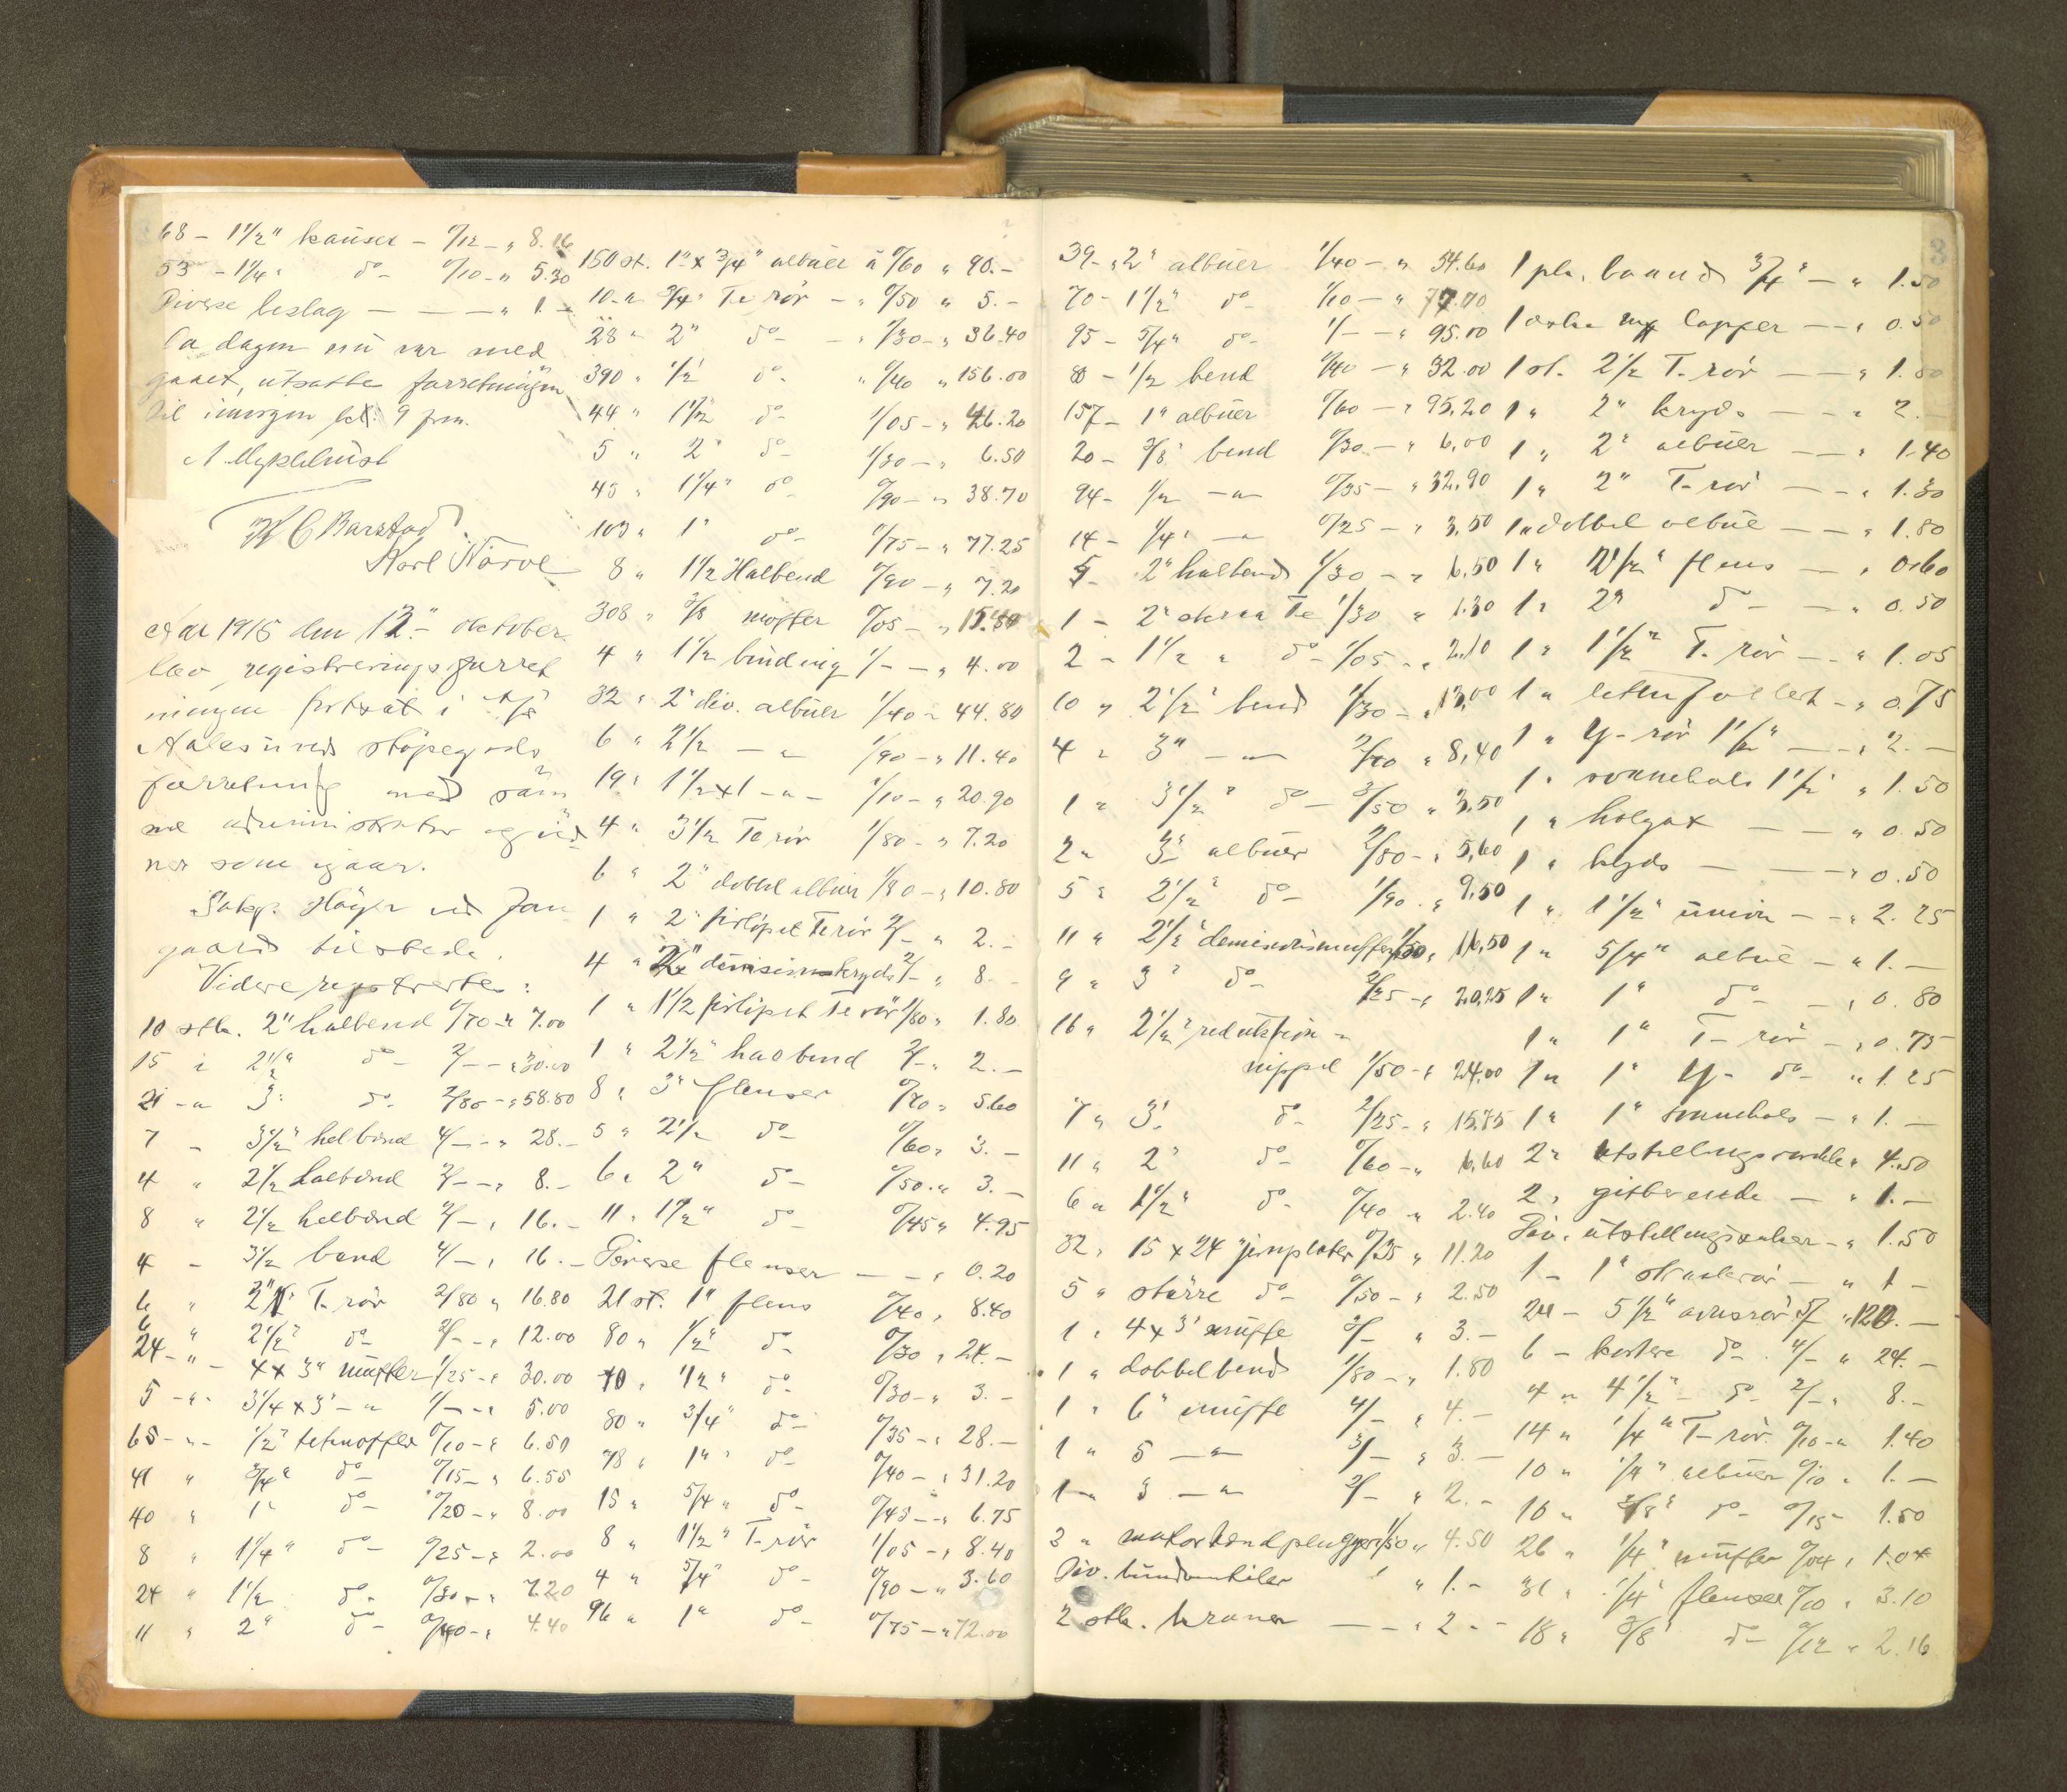 68 – 1½" kauser – 0/12 – " 8.16
53 – 1¼" do – 0/10 – " 5.30
Diverse beslag — — — " 1.–
Da dagen nu var med
gaaet, utsattes forretningen
til imorgen kl. 9 fm.
A Myklebust
K C Barstad
Karl Norve
Aar 1915 den 12– oktober
blev registreringsforret
ningen fortsat i A/S
Aalesunds støpegods
forretning med sam
me administrator og vid
ner som igaar.
Sakf. Høyer ved Jan
gaard tilstede.
Videre registrertes:
10 stk. 2" halbend 0/70 – " 7.00
15 " 2½" do – 2/– – " 30.00
21 – " 3" do – 2/80 – " 58.80
7 – 3½" helbend 4/– – " 28.–
4 " 2½ halbend 2/– – " 8.–
8 " 2½ helbend 2/– " 16.–
4 – 3½ bend 4/– " 16.–
6 " 2" T-rør 2/80 " 16.80
6 " 2½" do – 2/– – " 12.00
24 – " – 4 x 3" muffer 1/25 – " 30.00
5 – " – 3¼ x 3" – " 1/– – " 5.00
65 – " – ½" temoffer 0/10 – " 6.50
41 " ¾" do – 0/15 – " 6.55
40 " 1" do – 0/20 – " 8.00
8 " 1¼" do – 0/25 – " 2.00
24 " 1½ do – 0/30 – " 7.20
11 " 2" do – 0/40 – " 4.40
150 st. 1" x ¾" albuer à 0/60 " 90.–
10 – " ¾" Te rør – " 0/50 " 5.–
28 " 2" do – – " 1/30 – " 36.40
390 " ½" do – " 0/40 " 156.00
44 " 1½ do – 1/05 – " 46.20
5 " 2" do – 1/30 – " 6.50
43 " 1¼" do – 0/90 – " 38.70
103 " 1" do – 0/75 – " 77.25
8 " 1½ Halbend 0/90 – " 7.20
308 " 3/8 moffer 0/05 – " 15.40
4 " 1½ binding 1/– – " 4.00
32 " 2" div. albuer 1/40 – 44.80
6 " 2½ – " 1/90 – " 11.40
19 " 1½ x 1 – " – 1/10 – " 20.90
4 " 3½ Te rør 1/80 – " 7.20
6 " 2" dobbel albuer 1/80 – " 10.80
1 " 2" forløpet Te rør 2/– " 2.–
4 " 2½" dimisionskryds 2/– " 8.–
1 " 1½ forløpet Te rør 1/80 " 1.80
1 " 2½" halbend 2/– " 2.–
8 " 3" flenser 0/70 " 5.60
5 " 2½ do – 0/60 " 3.–
6 " 2" do – 0/50 – " 3.–
11 " 1½" do – 0/45 " 4.95
Diverse flenser — — " 0.20
21 st. 1" flens 0/40 " 8.40
80 " ½" do – 0/30 " 24.–
10 " ½" do – 0/30 – " 3.–
80 " ¾" do – 0/35 – " 28.–
78 " 1" do – 0/40 – " 31.20
15 " 5/4" do – 0/45 – " 6.75
8 " 1½" T-rør 1/05 – " 8.40
4 " 5/4" do – 0/90 – " 3.60
96 " 1" do – 0/75 – " 72.00
3
39 – " 2" albuer 1/40 – " 54.60
70 – 1½" do – 1/10 – " 77.00
95 – 5/4" do – 1/– – " 95.00
80 – ½ bend 0/40 – " 32.00
157 – 1" albuer 0/60 – " 95,20
20 – 3/8" bend 0/30 – " 6,00
94 – ½ – " – 0/35 – " 32,90
14 – ¼" – " 0/25 – " 3,50
5 – 2" halbend 1/30 – " 6,50
1 – 2" skraa Te 1/30 " 1.30
2 – 1½ " do – 1/05 – " 2,10
10 " 2½" bend 1/30 – " 13,00
4 " 3" – " – 2/10 " 8,40
1 " 3½" do – 3/50 " 3,50
2 " 3" albuer 2/80 – " 5,60
5 " 2½" do – 1/90 – " 9,50
11 " 2½" demisionsmuffer 1/50 " 16,50
9 " 3" do – 2/25 – " 20,25
16 " 2½" reduktion –
nippel 1/50 – " 24.00
7 " 3" do – 2/25 – " 15,75
11 " 2" do – 0/60 – " 6,60
6 " 1½" do – 0/40 – " 2.40
32 " 15 x 24 jernplater 0/35 " 11.20
5 " større do – 0/50 – " 2.50
1 " 4 x 3" muffe 3/– " 3.–
1 " dobbelbend 1/80 – " 1.80
1 " 6" muffe 4/– " 4.–
1 " 5 – " – 3/– " 3.–
1 – " 3 – " – 2/– " 2.–
3 " 1/50 " 4.50
Div. bundventiler " 1.–
2 stk. kraner — — " 2.–
1 pk. baand ¾" – " 1.50
1 æske lapper — – " 0.50
1 st. 2½ T-rør — – " 1.80
1 " 2" kryds — – " 2.–
1 " 2" albuer — – " 1.40
1 " 2" T-rør — – " 1.30
1 " dobbel albue — – " 1.80
1 " 2½" flens — " 0.60
1 " 2" do – — " 0.50
1 " 1½" T-rør — – " 1.05
1 " 0.75
1 " Y-rør 1½" — – " 2.–
1 " svanehals 1½" " 1.50
1 " holgax — – " 0.50
1 " kryds — – " 0.50
1 " 1½" union – – " 2.25
1 " 5/4" albue – " 1.–
1 " 1" do – – " 0.80
1 " 1" T-rør – " 0.75
1 " 1" Y- do – " 1.25
1 " 1" svanehals – " 1.–
2 " utstillingsreoler " 4.50
2 " gitterende – " 1.–
Div. utstillingssaker – " 1.50
1 – 1" strålerør – " 1 –
24 – 5½" ovnsrør 5/– " 120.–
6 – kortere do – 4/– " 24.–
4 " 4½" – do – 2/– " 8.–
14 " ¼" T-rør 0/10 – " 1.40
10 " ¼" albuer 0/10 " 1.–
10 " 3/8" do – 0/15 – 1.50
26 " ¼" muffer 0/04 " 1.04
31 " ¼" flenser 0/10 " 3.10
18 " 3/8" do – 0/12 " 2.16